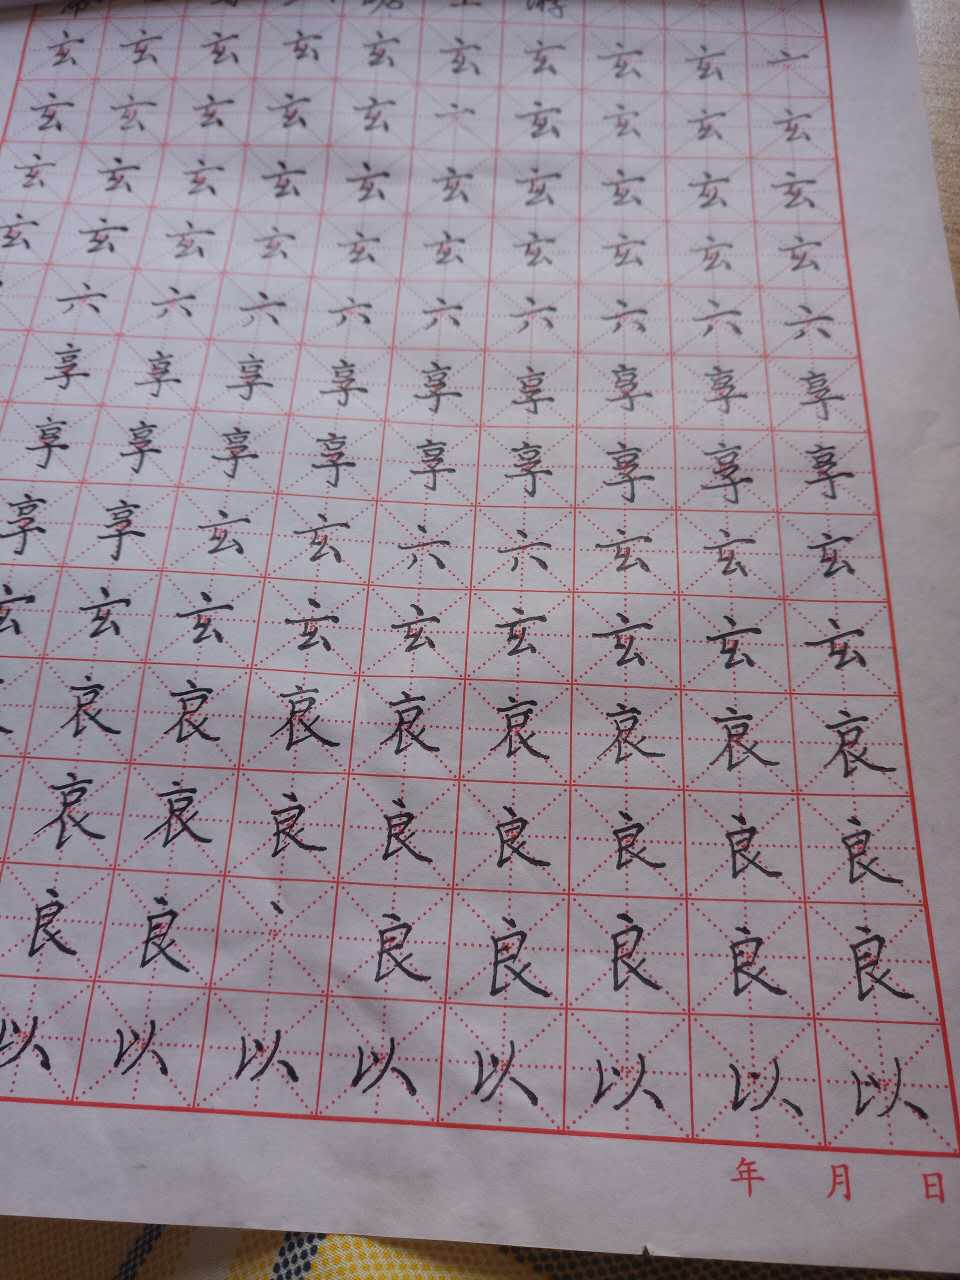 玄玄玄玄玄玄玄玄玄亠
玄玄玄玄玄亠玄玄玄玄
玄玄玄玄玄玄玄玄玄玄
玄玄玄玄玄玄玄玄玄玄
六六六六六六六六六
享享享享享享享享享
享享享享享享享享享
享享玄玄六六玄玄玄
玄玄玄玄玄玄玄玄玄
哀哀哀哀哀哀哀哀
哀哀良良良良良良
良良丶良良良良良
以以以以以以以以
年 月 日